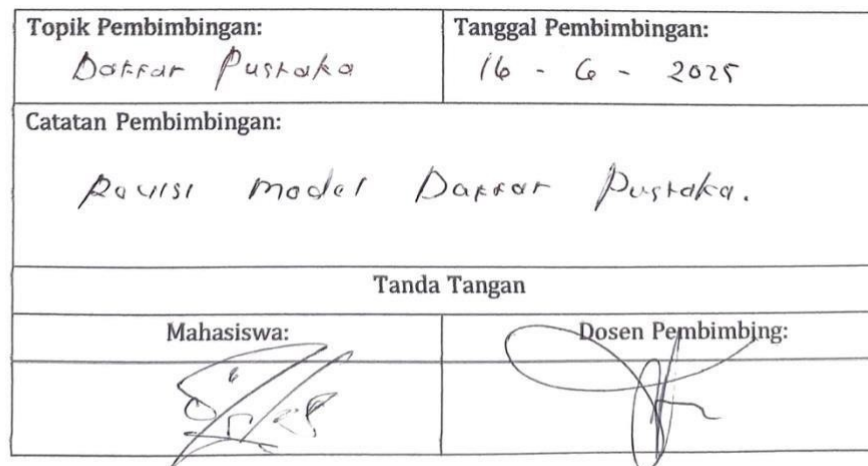 Topik Pembimbingan:
Daftar Pustaka
Tanggal Pembimbingan:
16 - 6 - 2025
Catatan Pembimbingan:
Revisi model Daftar Pustaka.
Tanda Tangan
Mahasiswa:
Dosen Pembimbing: